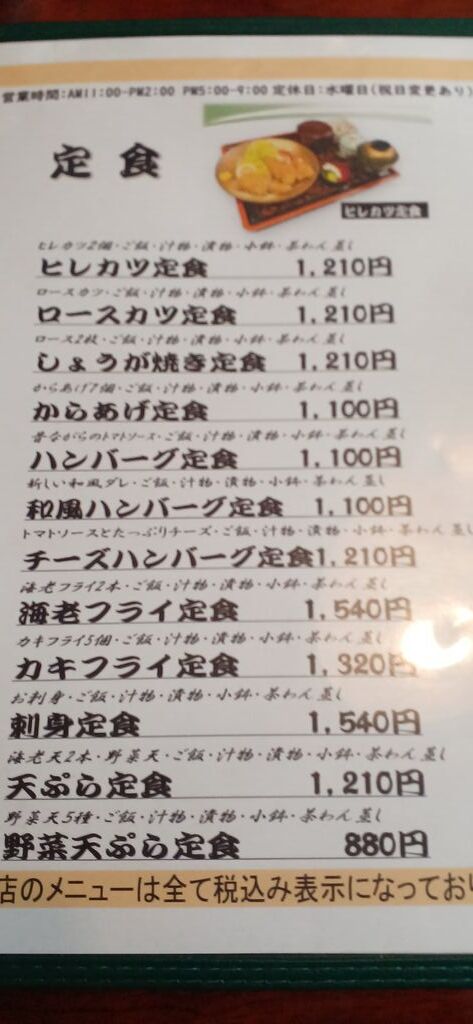 営業時間:AM11:00-PM2:00 PM5:00-9:00 定休日:水曜日(祝日変更あり)
定食
ヒレカツ定食
ヒレカツ2個・ご飯・汁物・漬物・小鉢・茶わん蒸し
ヒレカツ定食 1,210円
ロースカツ・ご飯・汁物・漬物・小鉢・茶わん蒸し
ロースカツ定食 1,210円
ロース2枚・ご飯・汁物・漬物・小鉢・茶わん蒸し
しょうが焼き定食 1,210円
からあげ7個・ご飯・汁物・漬物・小鉢・茶わん蒸し
からあげ定食 1,100円
昔ながらのトマトソース・ご飯・汁物・漬物・小鉢・茶わん蒸し
ハンバーグ定食 1,100円
新しい和風ダレ・ご飯・汁物・漬物・小鉢・茶わん蒸し
和風ハンバーグ定食 1,100円
トマトソースとたっぷりチーズ・ご飯・汁物・漬物・小鉢・茶わん蒸し
チーズハンバーグ定食 1,210円
海老フライ2本・ご飯・汁物・漬物・小鉢・茶わん蒸し
海老フライ定食 1,540円
カキフライ5個・ご飯・汁物・漬物・小鉢・茶わん蒸し
カキフライ定食 1,320円
お刺身・ご飯・汁物・漬物・小鉢・茶わん蒸し
刺身定食 1,540円
海老天2本・野菜天・ご飯・汁物・漬物・小鉢・茶わん蒸し
天ぷら定食 1,210円
野菜天5種・ご飯・汁物・漬物・小鉢・茶わん蒸し
野菜天ぷら定食 880円
店のメニューは全て税込み表示になっており